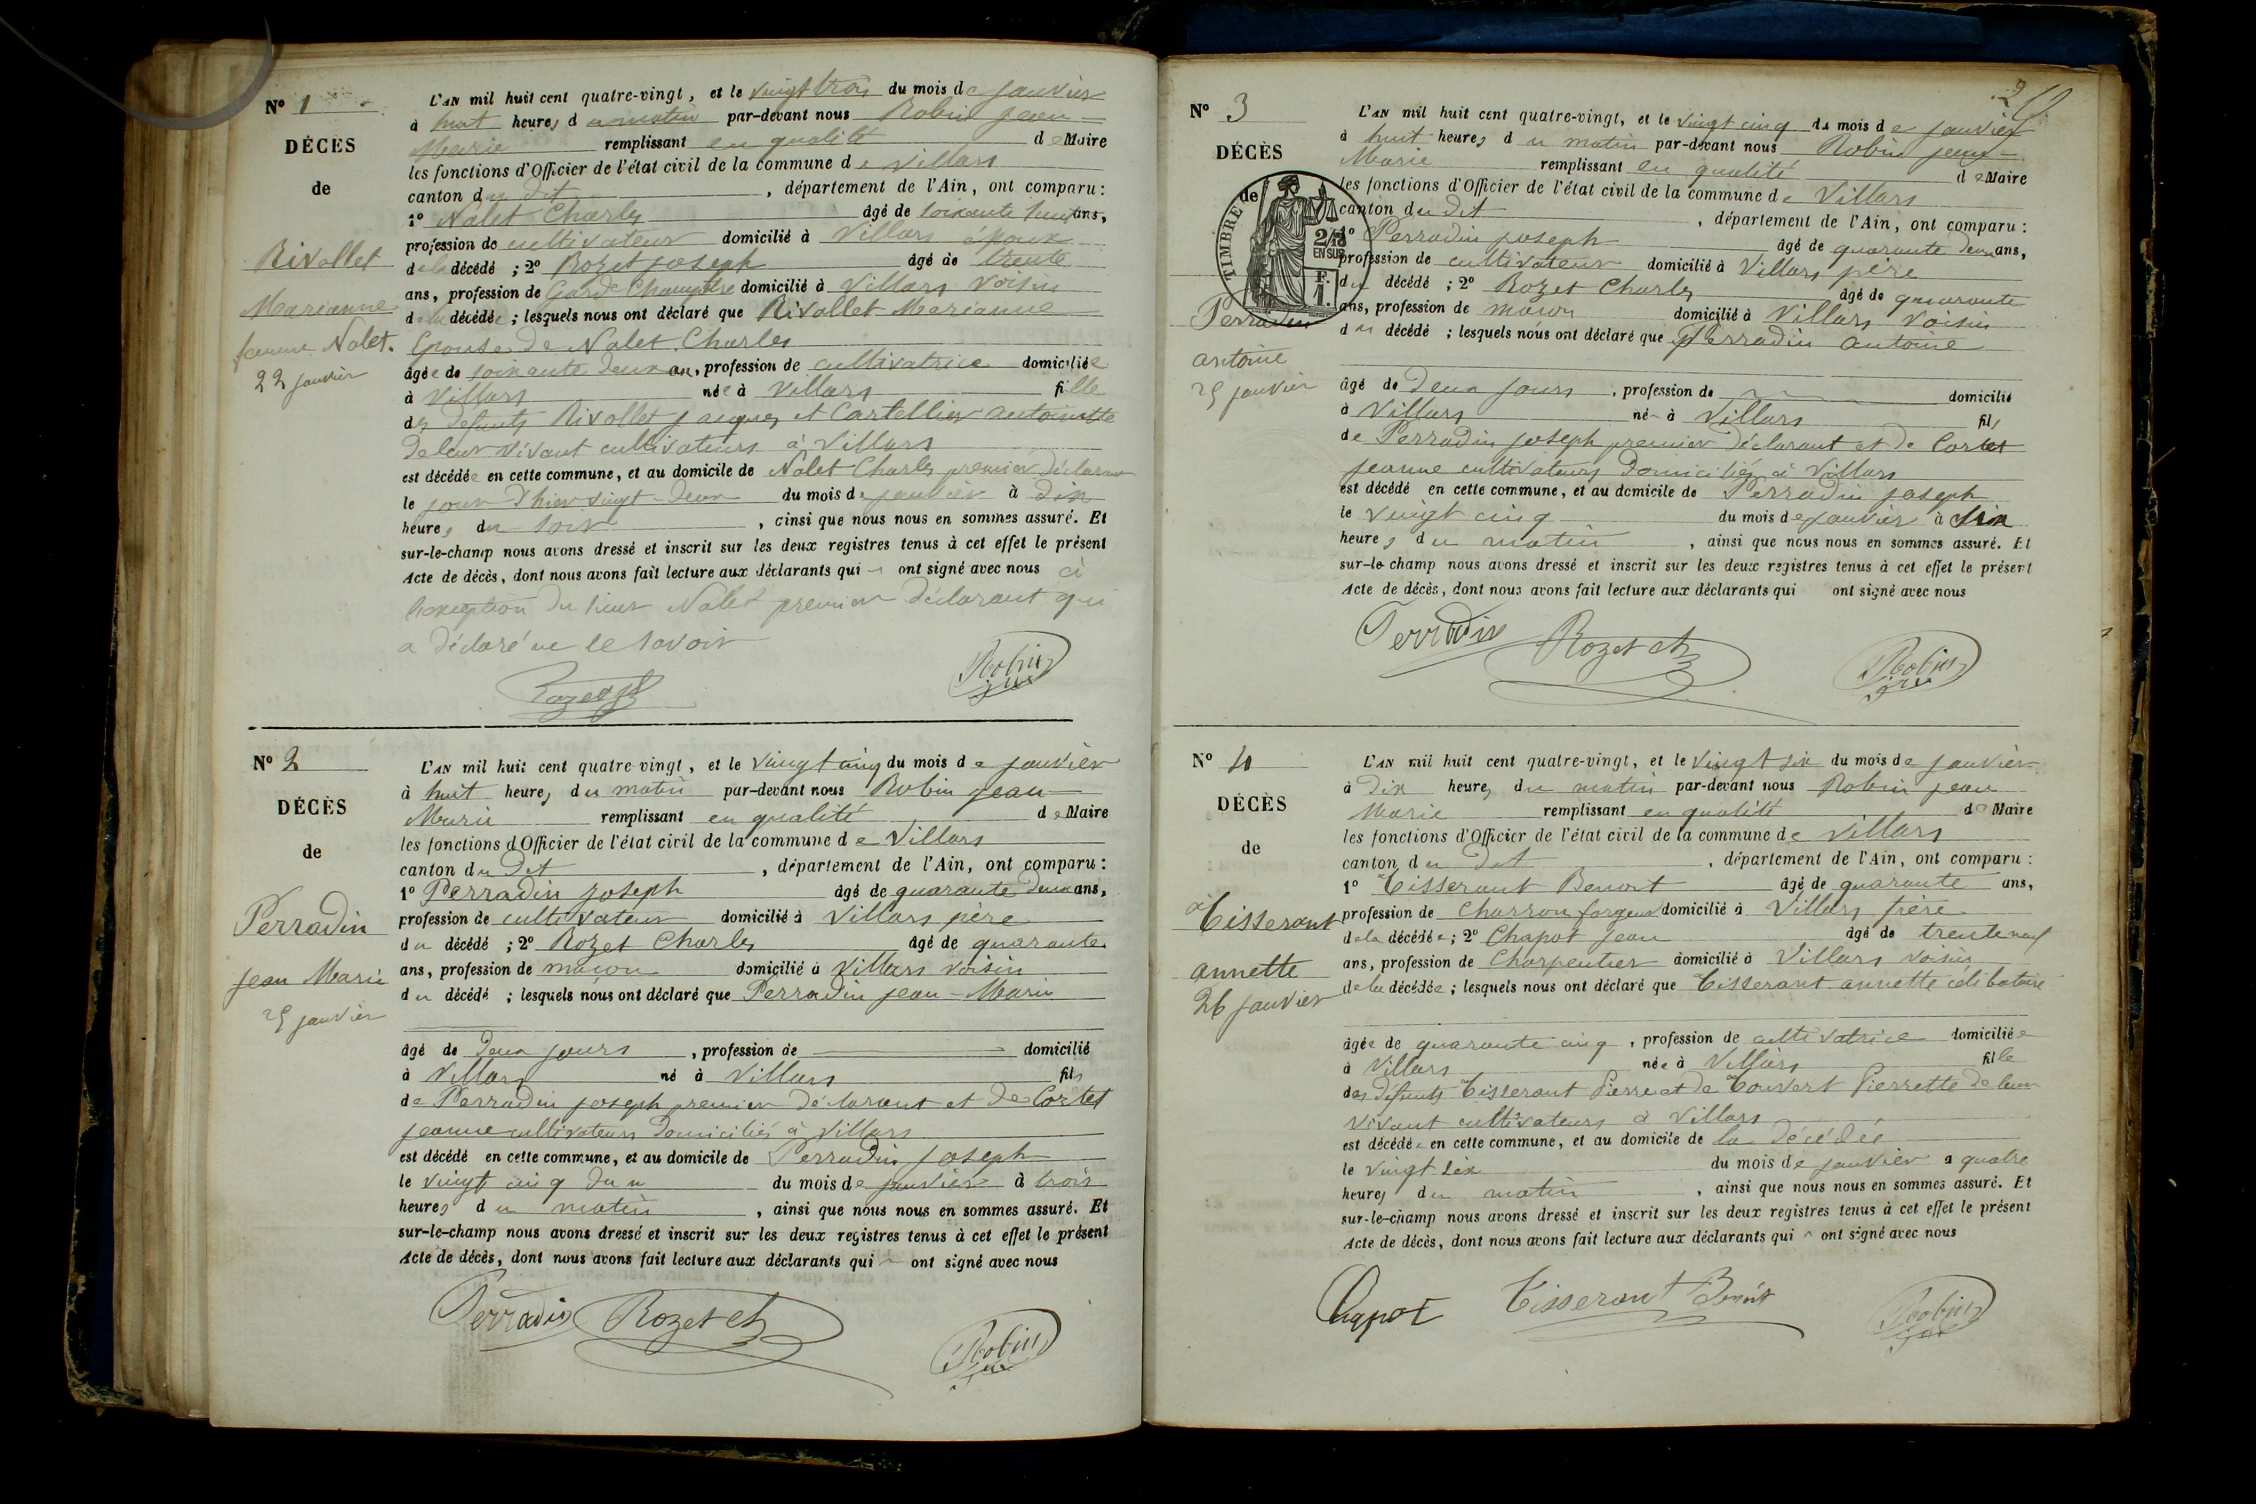 N° 1
DÉCÈS
de
Rivollet
Marianne
femme Nalet.
22 janvier
L'AN mil huit cent quatre-vingt, et le vingt trois du mois de janvier
à huit heures du matin par-devant nous Robin Jean-
Marie remplissant en qualité de Maire
les fonctions d'Officier de l'état civil de la commune de Villars
canton du dit, département de l'Ain, ont comparu :
1° Nalet Charles âgé de soixante ans,
profession de cultivateur domicilié à Villars époux
de la décédé ; 2° Rozet joseph âgé de trente
ans, profession de Garde Champêtre domicilié à Villars voisin
de la décédée ; lesquels nous ont déclaré que Rivollet Marianne
Epouse de Nalet Charles
âgée de soixante deux ans, profession de cultivatrice domiciliée
à Villars née à Villars fille
des défunts Rivollet jacques et Cartellier antoinette
de leur vivant cultivateurs à Villars
est décédée en cette commune, et au domicile de Nalet Charles premier déclarant
le jour d'hier vingt-deux du mois de janvier à dix
heures du soir, ainsi que nous nous en sommes assuré. Et
sur-le-champ nous avons dressé et inscrit sur les deux registres tenus à cet effet le présent
Acte de décès, dont nous avons fait lecture aux déclarants qui ont signé avec nous à
l'exception du sieur Nalet premier déclarant qui
a déclaré ne le savoir
Rozet
Robin
N° 2
DÉCÈS
de
Perradin
jean Marie
25 janvier
L'AN mil huit cent quatre-vingt, et le vingt cinq du mois de janvier
à huit heures du matin par-devant nous Robin jean-
Marie remplissant en qualité de Maire
les fonctions d'Officier de l'état civil de la commune de Villars
canton du Dit, département de l'Ain, ont comparu :
1° Perradin joseph âgé de quarante deux ans,
profession de cultivateur domicilié à Villars père
du décédé ; 2° Rozet Charles âgé de quarante
ans, profession de maçon domicilié à Villars voisin
du décédé ; lesquels nous ont déclaré que Perradin jean-Marie
âgé de deux jours, profession de domicilié
à Villars né à Villars fils
de Perradin joseph premier déclarant et de Cortet
jeanne cultivateurs domiciliés à Villars
est décédé en cette commune, et au domicile de Perradin joseph
le vingt cinq du mois de janvier à trois
heures du matin, ainsi que nous nous en sommes assuré. Et
sur-le-champ nous avons dressé et inscrit sur les deux registres tenus à cet effet le présent
Acte de décès, dont nous avons fait lecture aux déclarants qui ont signé avec nous
Perradin Rozet ch
Robin
N° 3
DÉCÈS
de
TIMBRE
2/10
EN SUS
F.
1.
Perradin
antoine
25 janvier
L'AN mil huit cent quatre-vingt, et le vingt cinq du mois de janvier
à huit heures du matin par-devant nous Robin jean-
Marie remplissant en qualité de Maire
les fonctions d'Officier de l'état civil de la commune de Villars
canton du dit, département de l'Ain, ont comparu :
1° Perradin joseph âgé de quarante deux ans,
profession de cultivateur domicilié à Villars père
du décédé ; 2° Rozet Charles âgé de quarante
ans, profession de maçon domicilié à Villars voisin
du décédé ; lesquels nous ont déclaré que Perradin antoine
âgé de deux jours, profession de domicilié
à Villars né à Villars fils
de Perradin joseph premier déclarant et de Cortet
jeanne cultivateurs domiciliés à Villars
est décédé en cette commune, et au domicile de Perradin joseph
le vingt cinq du mois de janvier à six
heures du matin, ainsi que nous nous en sommes assuré. Et
sur-le-champ nous avons dressé et inscrit sur les deux registres tenus à cet effet le présent
Acte de décès, dont nous avons fait lecture aux déclarants qui ont signé avec nous
Perradin Rozet ch
Robin
N° 4
DÉCÈS
de
Tisserant
annette
26 janvier
L'AN mil huit cent quatre-vingt, et le vingt six du mois de janvier
à dix heures du matin par-devant nous Robin jean
Marie remplissant en qualité de Maire
les fonctions d'Officier de l'état civil de la commune de Villars
canton du dit, département de l'Ain, ont comparu :
1° Tisserant Benoit âgé de quarante ans,
profession de Charron forgeur domicilié à Villars frère
de la décédée ; 2° Chapot jean âgé de trente neuf
ans, profession de Charpentier domicilié à Villars voisin
de la décédée ; lesquels nous ont déclaré que Tisserant annette célibataire
âgée de quarante cinq, profession de cultivatrice domiciliée
à Villars née à Villars fille
des défunts Tisserant Pierre et de Touvert Pierrette de leur
vivant cultivateurs à Villars
est décédée en cette commune, et au domicile de la décédée
le vingt six du mois de janvier à quatre
heures du matin, ainsi que nous nous en sommes assuré. Et
sur-le-champ nous avons dressé et inscrit sur les deux registres tenus à cet effet le présent
Acte de décès, dont nous avons fait lecture aux déclarants qui ont signé avec nous
Chapot Tisserant Benoit
Robin